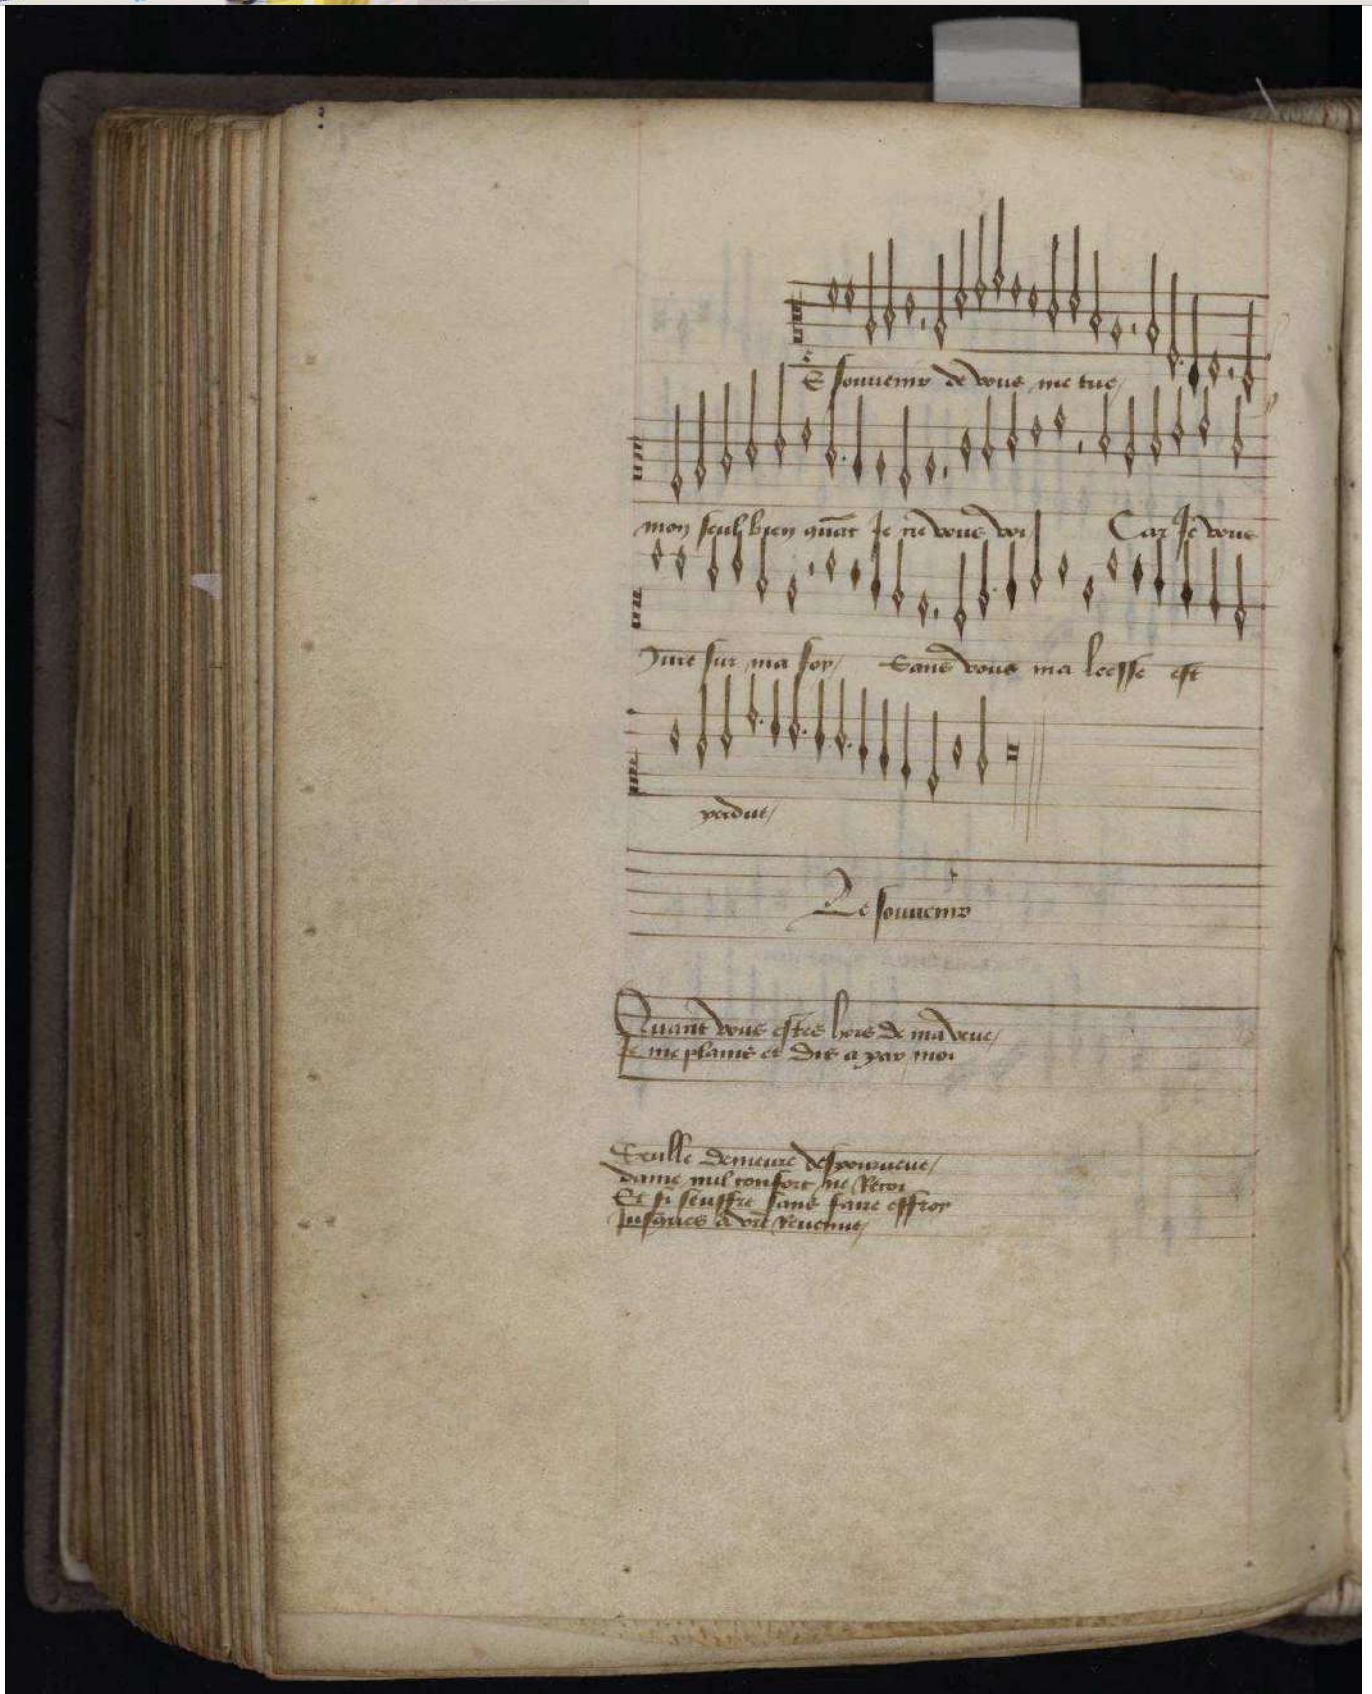 E souvenir de vous me tue/
mon seul bien quāt Je ne vous voi Car Je vous
Jure sur ma foy/ Sans vous ma leesse est
perdue/
Le souvenir
Quant vous estes hors de ma veue/
Je me plains et dis a par moi
Seulle demeure despourveue/
dame nul confort ne Recoi
Et si seuffre sans faire effroy
Jusques a vrē Revenue/